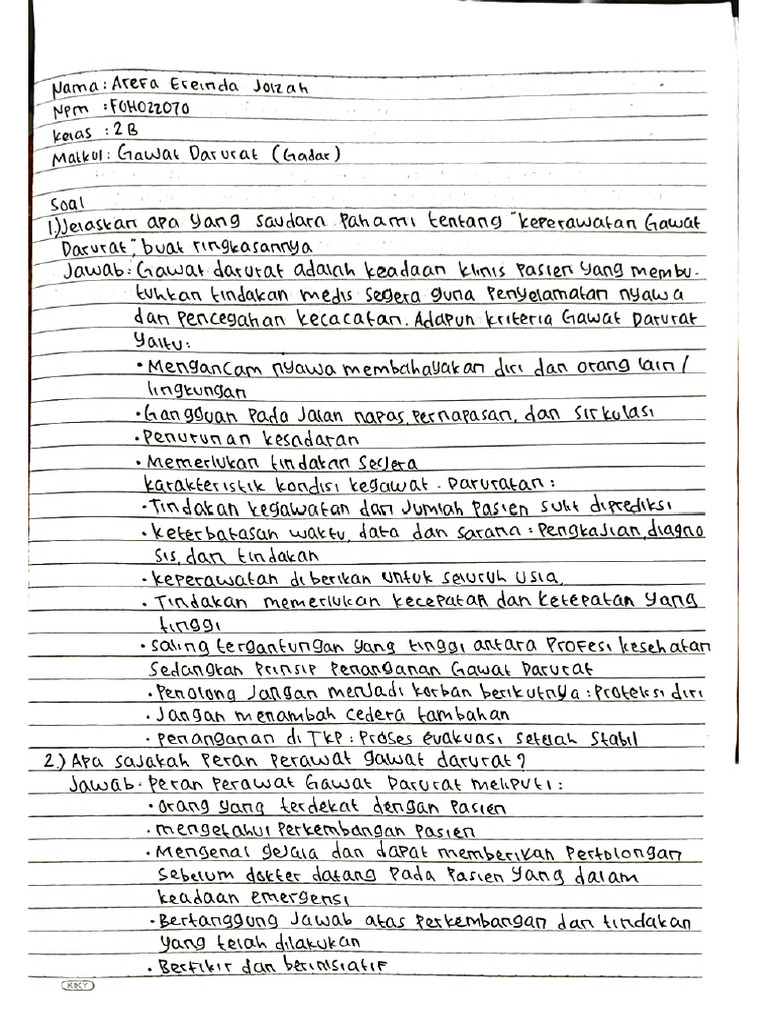 Nama : Arefa Efeinda Joizah
Npm : F0H022070
Kelas : 2B
Matkul : Gawat Darurat (Gadar)
Soal
1.) Jelaskan apa yang saudara pahami tentang "keperawatan Gawat
Darurat", buat ringkasannya
Jawab : Gawat darurat adalah keadaan klinis pasien yang membu-
tuhkan tindakan medis segera guna penyelamatan nyawa
dan pencegahan kecacatan. Adapun kriteria Gawat Darurat
yaitu :
• Mengancam nyawa membahayakan diri dan orang lain /
lingkungan
• Gangguan pada Jalan napas, pernapasan, dan sirkulasi
• Penurunan kesadaran
• Memerlukan tindakan segera
karakteristik kondisi kegawat - Daruratan :
• Tindakan kegawatan dan Jumlah pasien sulit diprediksi
• keterbatasan waktu, data dan sarana : Pengkajian, diagno
sis, dan tindakan
• keperawatan diberikan untuk seluruh usia
• Tindakan memerlukan kecepatan dan ketepatan yang
tinggi
• saling tergantungan yang tinggi antara Profesi kesehatan
Sedangkan Prinsip Penanganan Gawat Darurat
• Penolong Jangan menjadi korban berikutnya : Proteksi diri
• Jangan menambah cedera tambahan
• penanganan di TKP : Proses evakuasi setelah Stabil
2.) Apa sajakah Peran Perawat gawat darurat?
Jawab : Peran Perawat Gawat Darurat meliputi :
• orang yang terdekat dengan Pasien
• mengetahui Perkembangan Pasien
• Mengenal gejala dan dapat memberikan Pertolongan
sebelum dokter datang pada Pasien yang dalam
keadaan emergensi
• Bertanggung Jawab atas Perkembangan dan tindakan
yang telah dilakukan
• Berfikir dan berinisiatif
KIKY